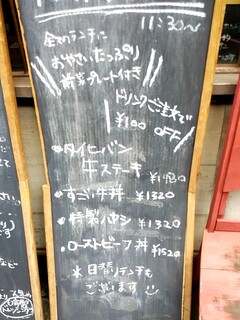 11:30〜
全てのランチに
おやさいたっぷり
前菜プレート付き
ドリンクご注文で
¥100 OFF
・タイヒバン
牛ステーキ
¥1430
・すごい牛丼 ¥1320
・特製ハヤシ ¥1320
・ローストビーフ丼 ¥1520
＊日替りランチも
ございます